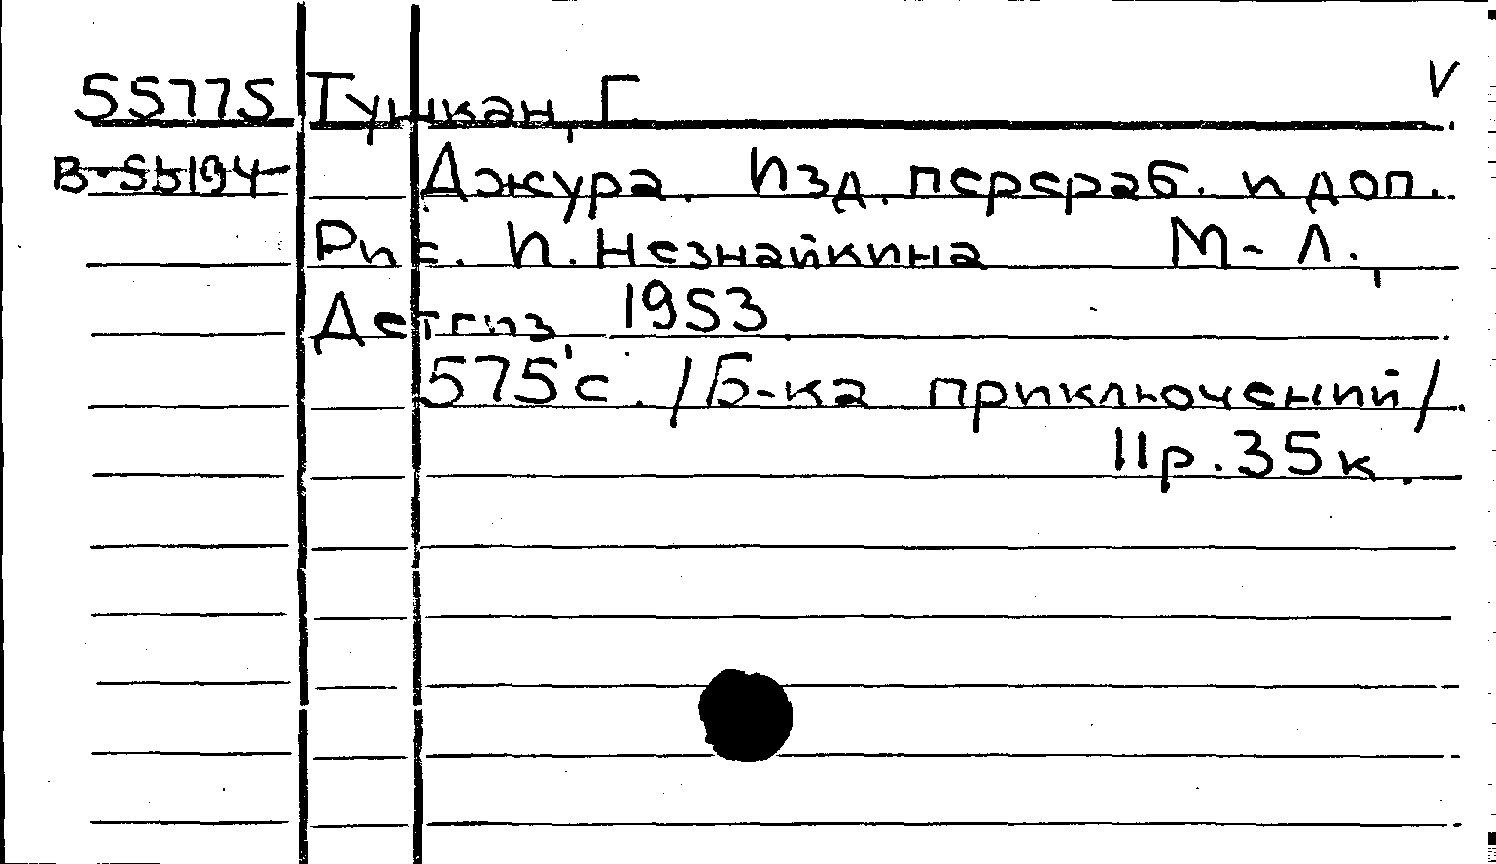 55775 Тушкан, Г. V
В-55194 Джура. Изд. перераб. и доп.
Рис. И. Незнайкина М-Л.,
Детгиз 1953
575 с. /Б-ка приключений/.
11р. 35к.